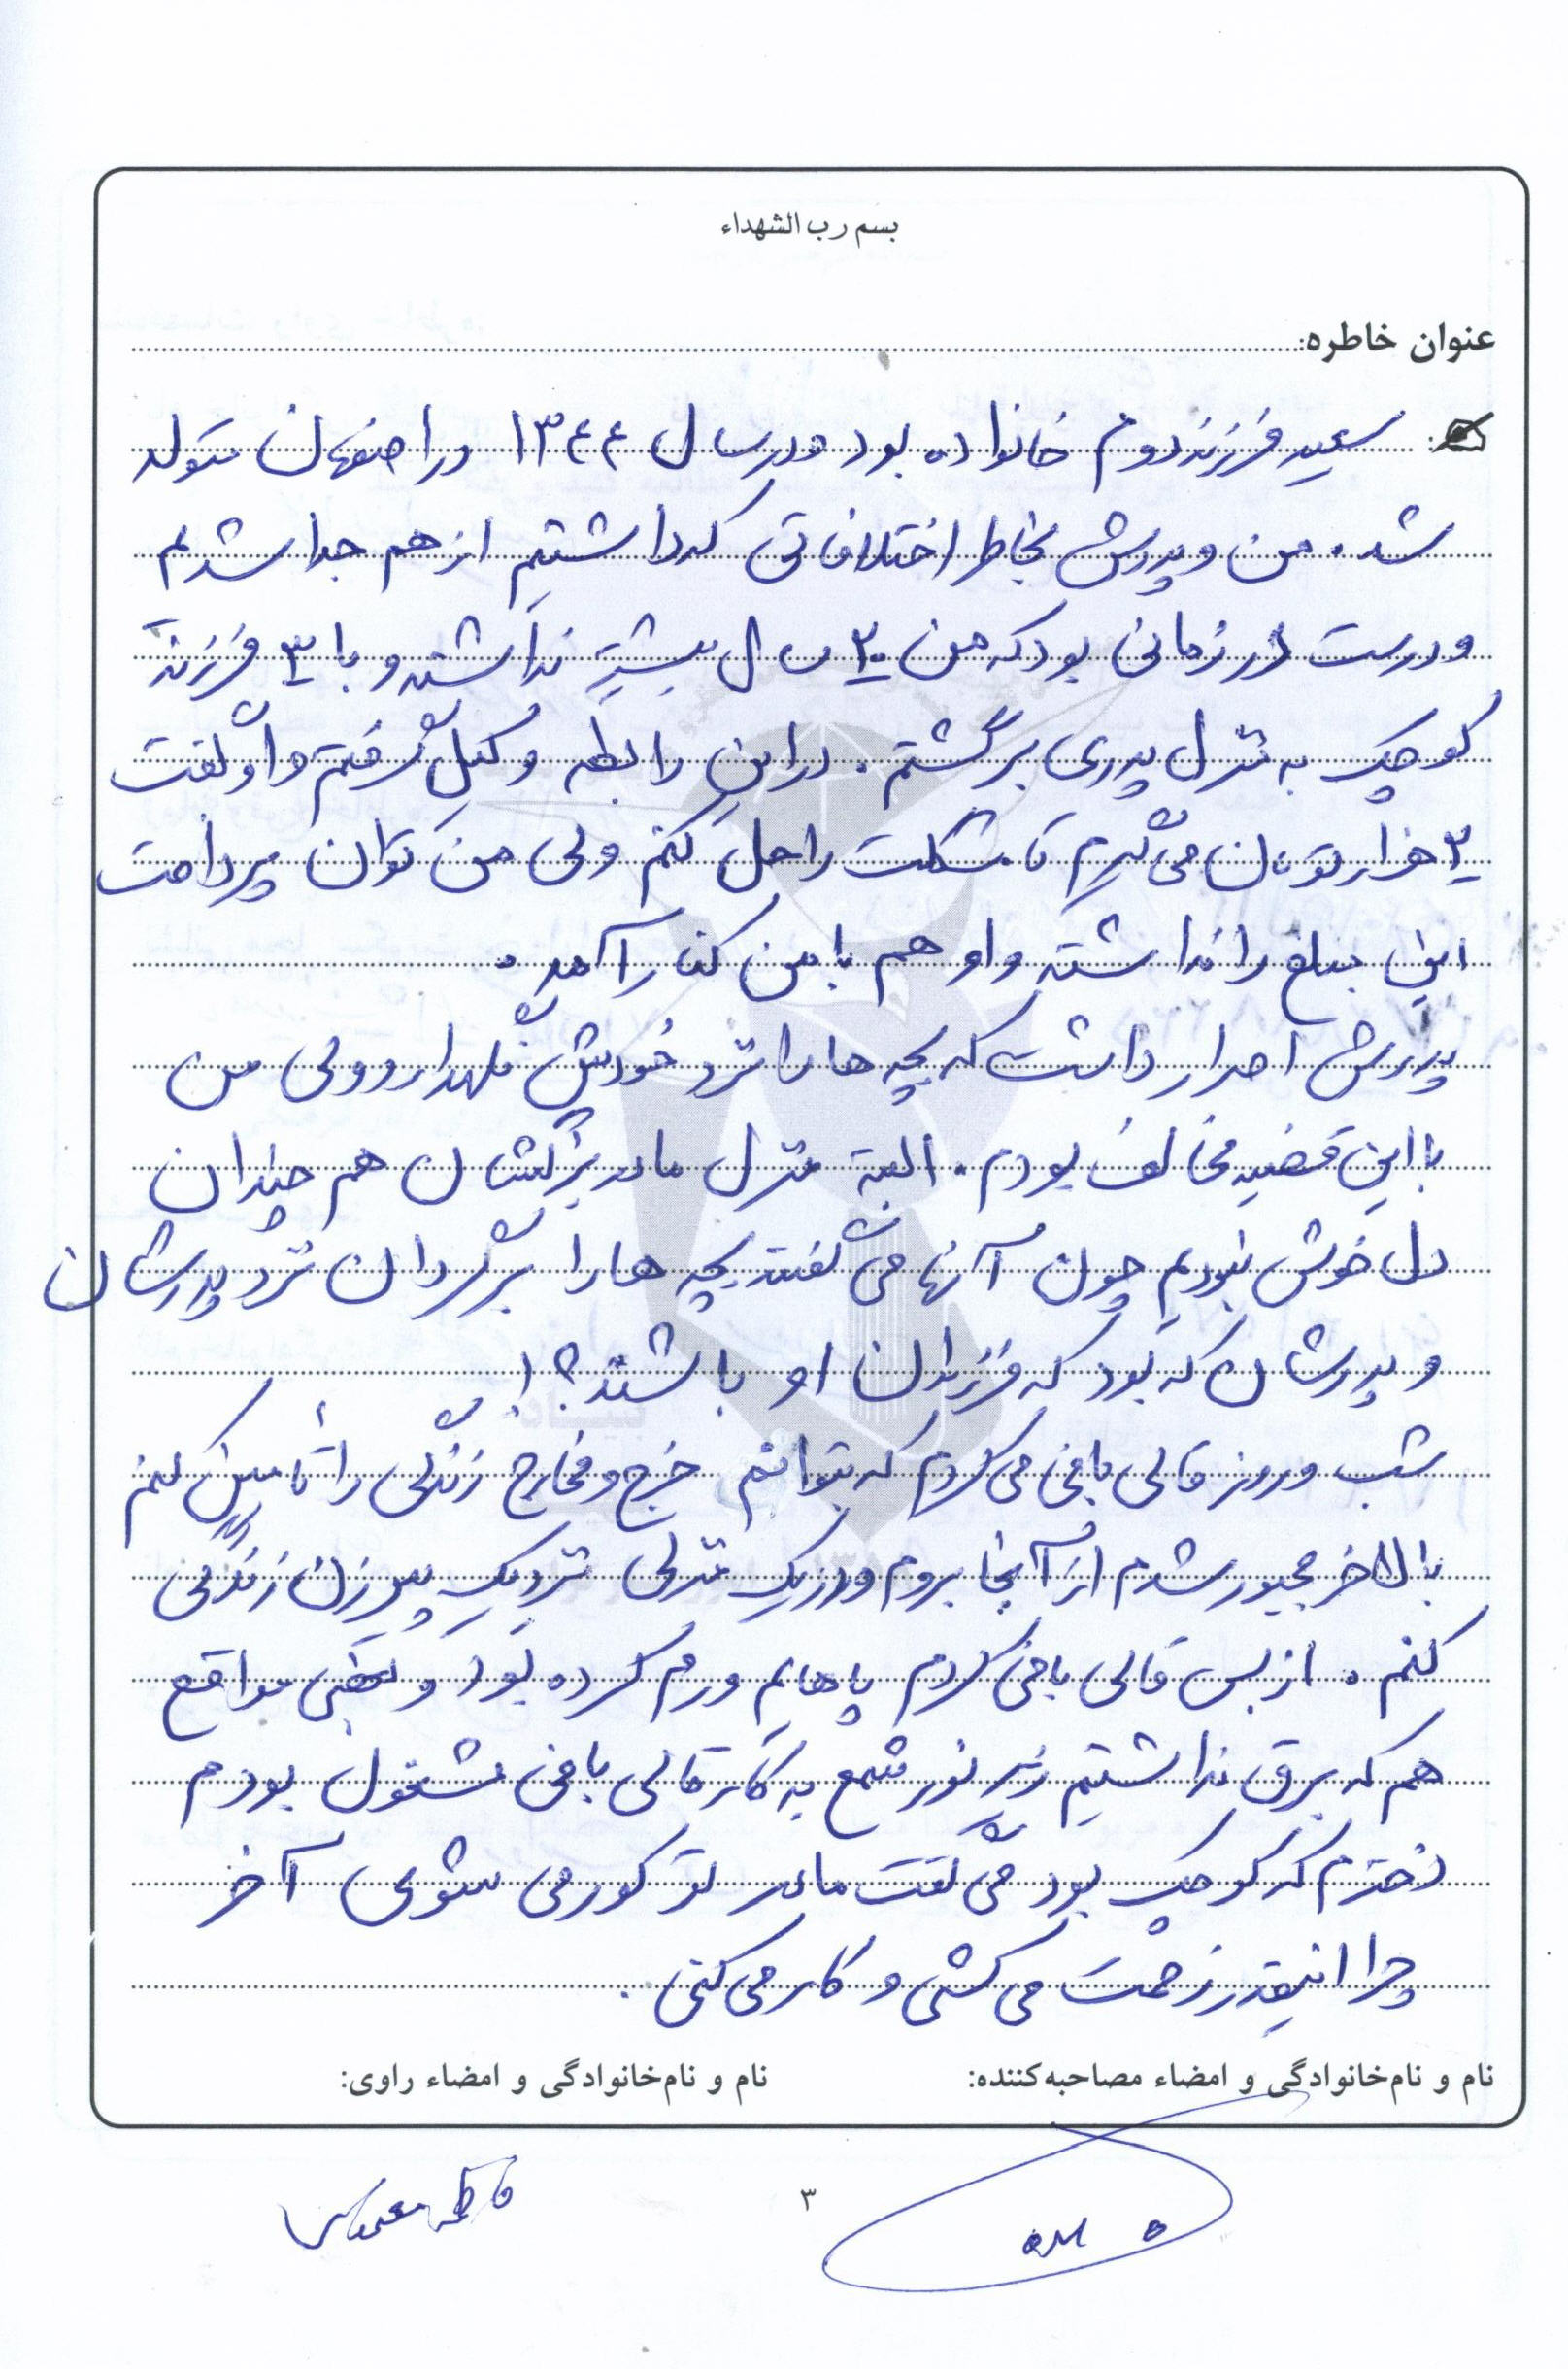 بسم رب الشهداء
عنوان خاطره:
سعید فرزند دوم خانواده بود ودر سال ۱۳۴۴ در اصفهان متولد
شد. من و پدرش بخاطر اختلافاتی که داشتیم از هم جدا شدیم
و درست در زمانی بود که من ۲۰ سال بیشتر نداشته و با ۳ فرزند
کوچک به منزل پدری برگشتم. در این رابطه وکیل گرفتم و او گفت
۲ هزار تومان می گیرم تا مشکلت را حل کنم ولی من توان پرداخت
این مبلغ را نداشته و او هم با من کنار آمد.
پدرش اصرار داشت که بچه ها را نزد خودش نگهدارد ولی من
با این قضیه مخالف بودم. البته منزل مادربزرگشان هم چندان
دل خوش نبودیم چون آنها می گفتند بچه ها را برگردان نزد پدرشان
و پدرشان که بود که فرزندان او باشند؟!
شب و روز قالی بافی می کردم که بتوانم خرج و مخارج زندگی را تأمین کنم
بالاخره مجبور شدم از آنجا بروم و در یک منزلی نزدیک پیرزن زندگی
کنم. از بس قالی بافی کردم پاهایم ورم کرده بود و بعضی مواقع
هم که برق نداشتیم زیر نور شمع به کار قالی بافی مشغول بودم
دخترم که کوچک بود می گفت مادر تو کور می شوی آخر
چرا اینقدر زحمت می کشی و کار می کنی.
نام و نام‌خانوادگی و امضاء مصاحبه‌کننده: نام و نام‌خانوادگی و امضاء راوی:
فاطمه
۳